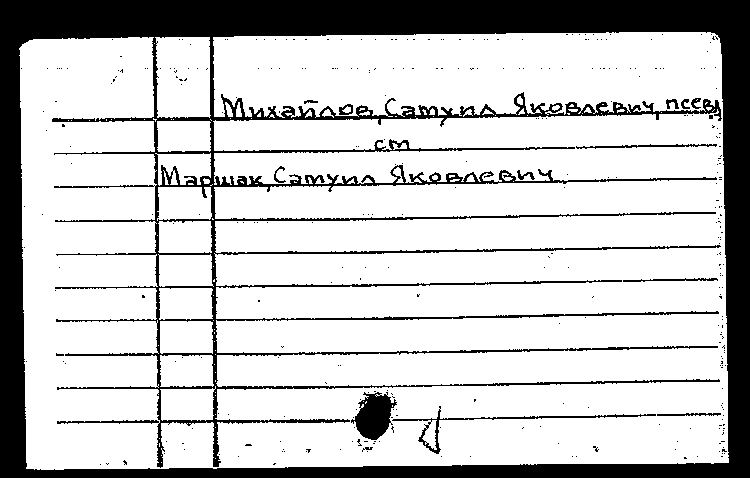 Михайлов, Самуил Яковлевич, псевд
см
Маршак, Самуил Яковлевич